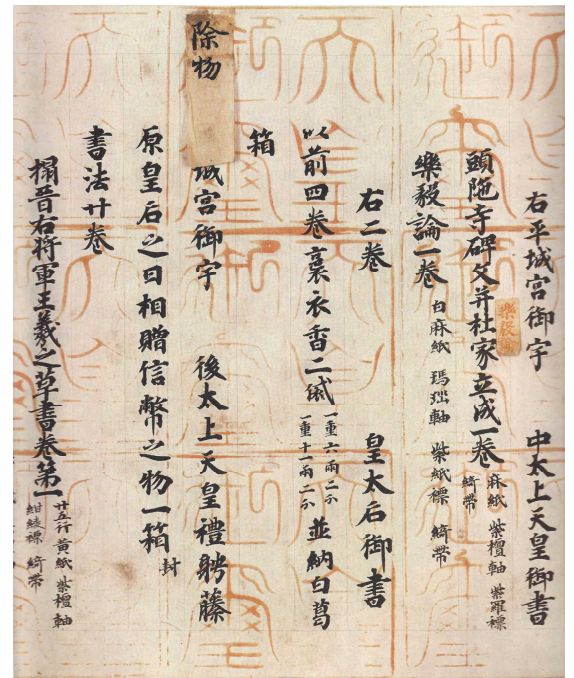 右平城宮御宇　中太上天皇御書
頭陁寺碑文并杜家立成一卷 麻紙　紫檀軸　紫羅褾
綺帶
樂毅論一卷 白麻紙　瑪瑙軸　紫紙褾　綺帶
右二卷　皇太后御書
以前四卷裹衣香二袋 一重六兩二分
一重十一兩二分 並納白葛
箱
除物
城宮御宇　後太上天皇禮聘藤
原皇后之日相贈信幣之物一箱 封
書法廿卷
搨晉右將軍王羲之草書卷第一 廿五行　黃紙　紫檀軸
紺綾褾　綺帶